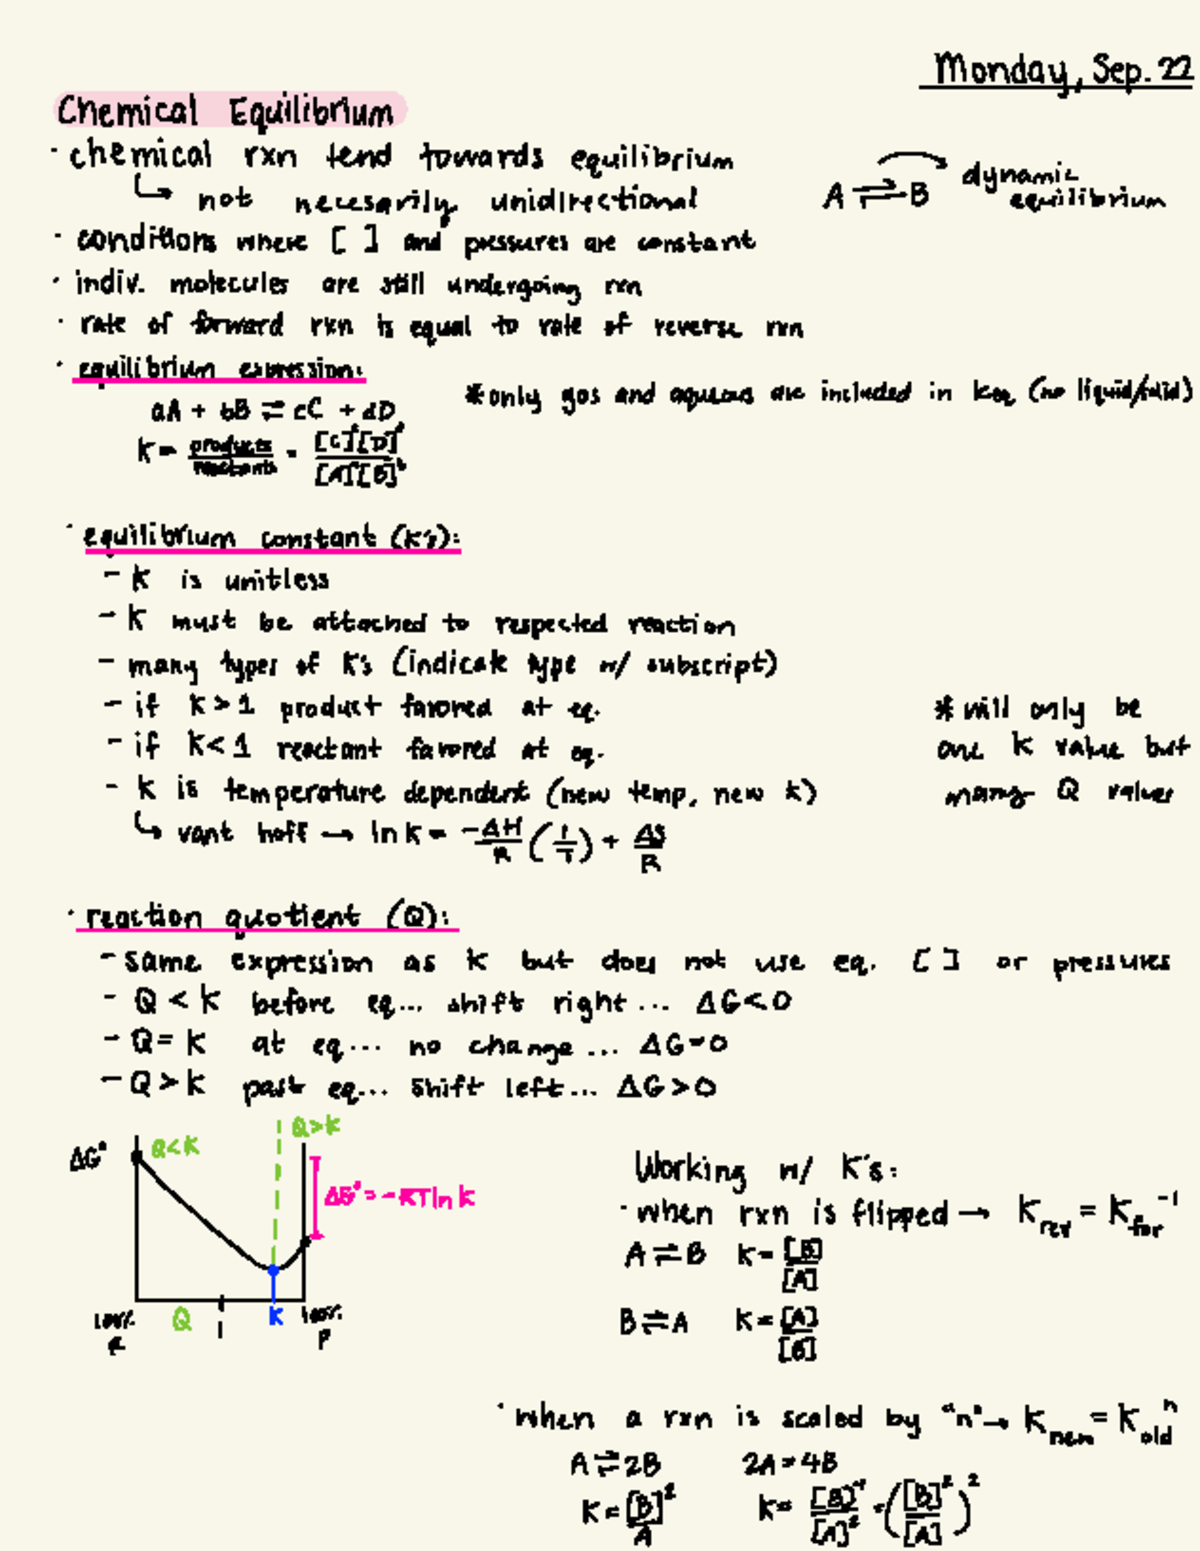 Monday, Sep. 22
Chemical Equilibrium
· chemical rxn tend towards equilibrium
↳ not necesarily unidirectional
A ⇌ B dynamic equilibrium
· conditions where [ ] and pressures are constant
· indiv. molecules are still undergoing rxn
· rate of forward rxn is equal to rate of reverse rxn
· equilibrium expression:
*only gas and aqueous are included in keq (no liquid/solid)
aA + bB ⇌ cC + dD
K = products/reactants = [C]^c[D]^d/[A]^a[B]^b
· equilibrium constant (K's):
- K is unitless
- K must be attached to respected reaction
- many types of K's (indicate type w/ subscript)
- if K > 1 product favored at eq.
- if K < 1 reactant favored at eq.
- K is temperature dependent (new temp, new k)
↳ vant hoff → ln K = -ΔH/R (1/T) + ΔS/R
* will only be
one K value but
many Q values
· reaction quotient (Q):
- same expression as K but does not use eq. [ ] or pressures
- Q < K before eq... shift right... ΔG<0
- Q = K at eq... no change... ΔG=0
- Q > K past eq... shift left... ΔG>0
ΔG°
Q<K
Q>K
ΔG°=-RTlnK
100% R
Q
1
K
100% P
Working w/ K's:
· when rxn is flipped → K_rev = K_for^-1
A ⇌ B K = [B]/[A]
B ⇌ A K = [A]/[B]
· when a rxn is scaled by "n" → K_new = K_old^n
A ⇌ 2B 2A ⇌ 4B
K = [B]^2/A K = [B]^4/[A]^2 = ([B]^2/[A])^2